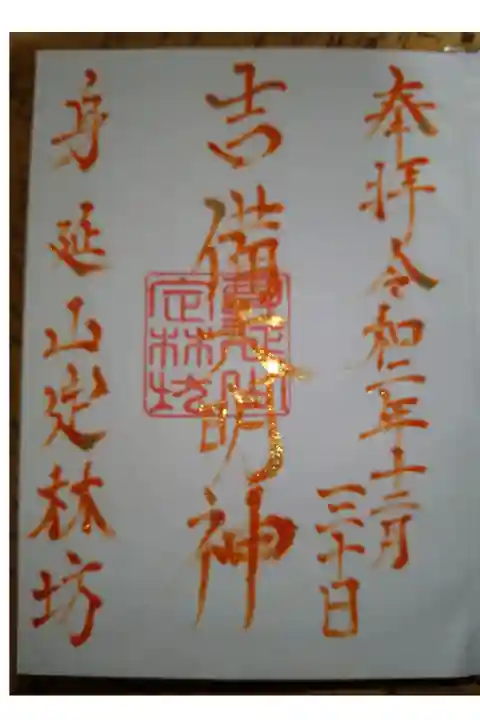 奉拝令和二年十二月
三十日
吉備大明神
身延山定林坊
定林坊